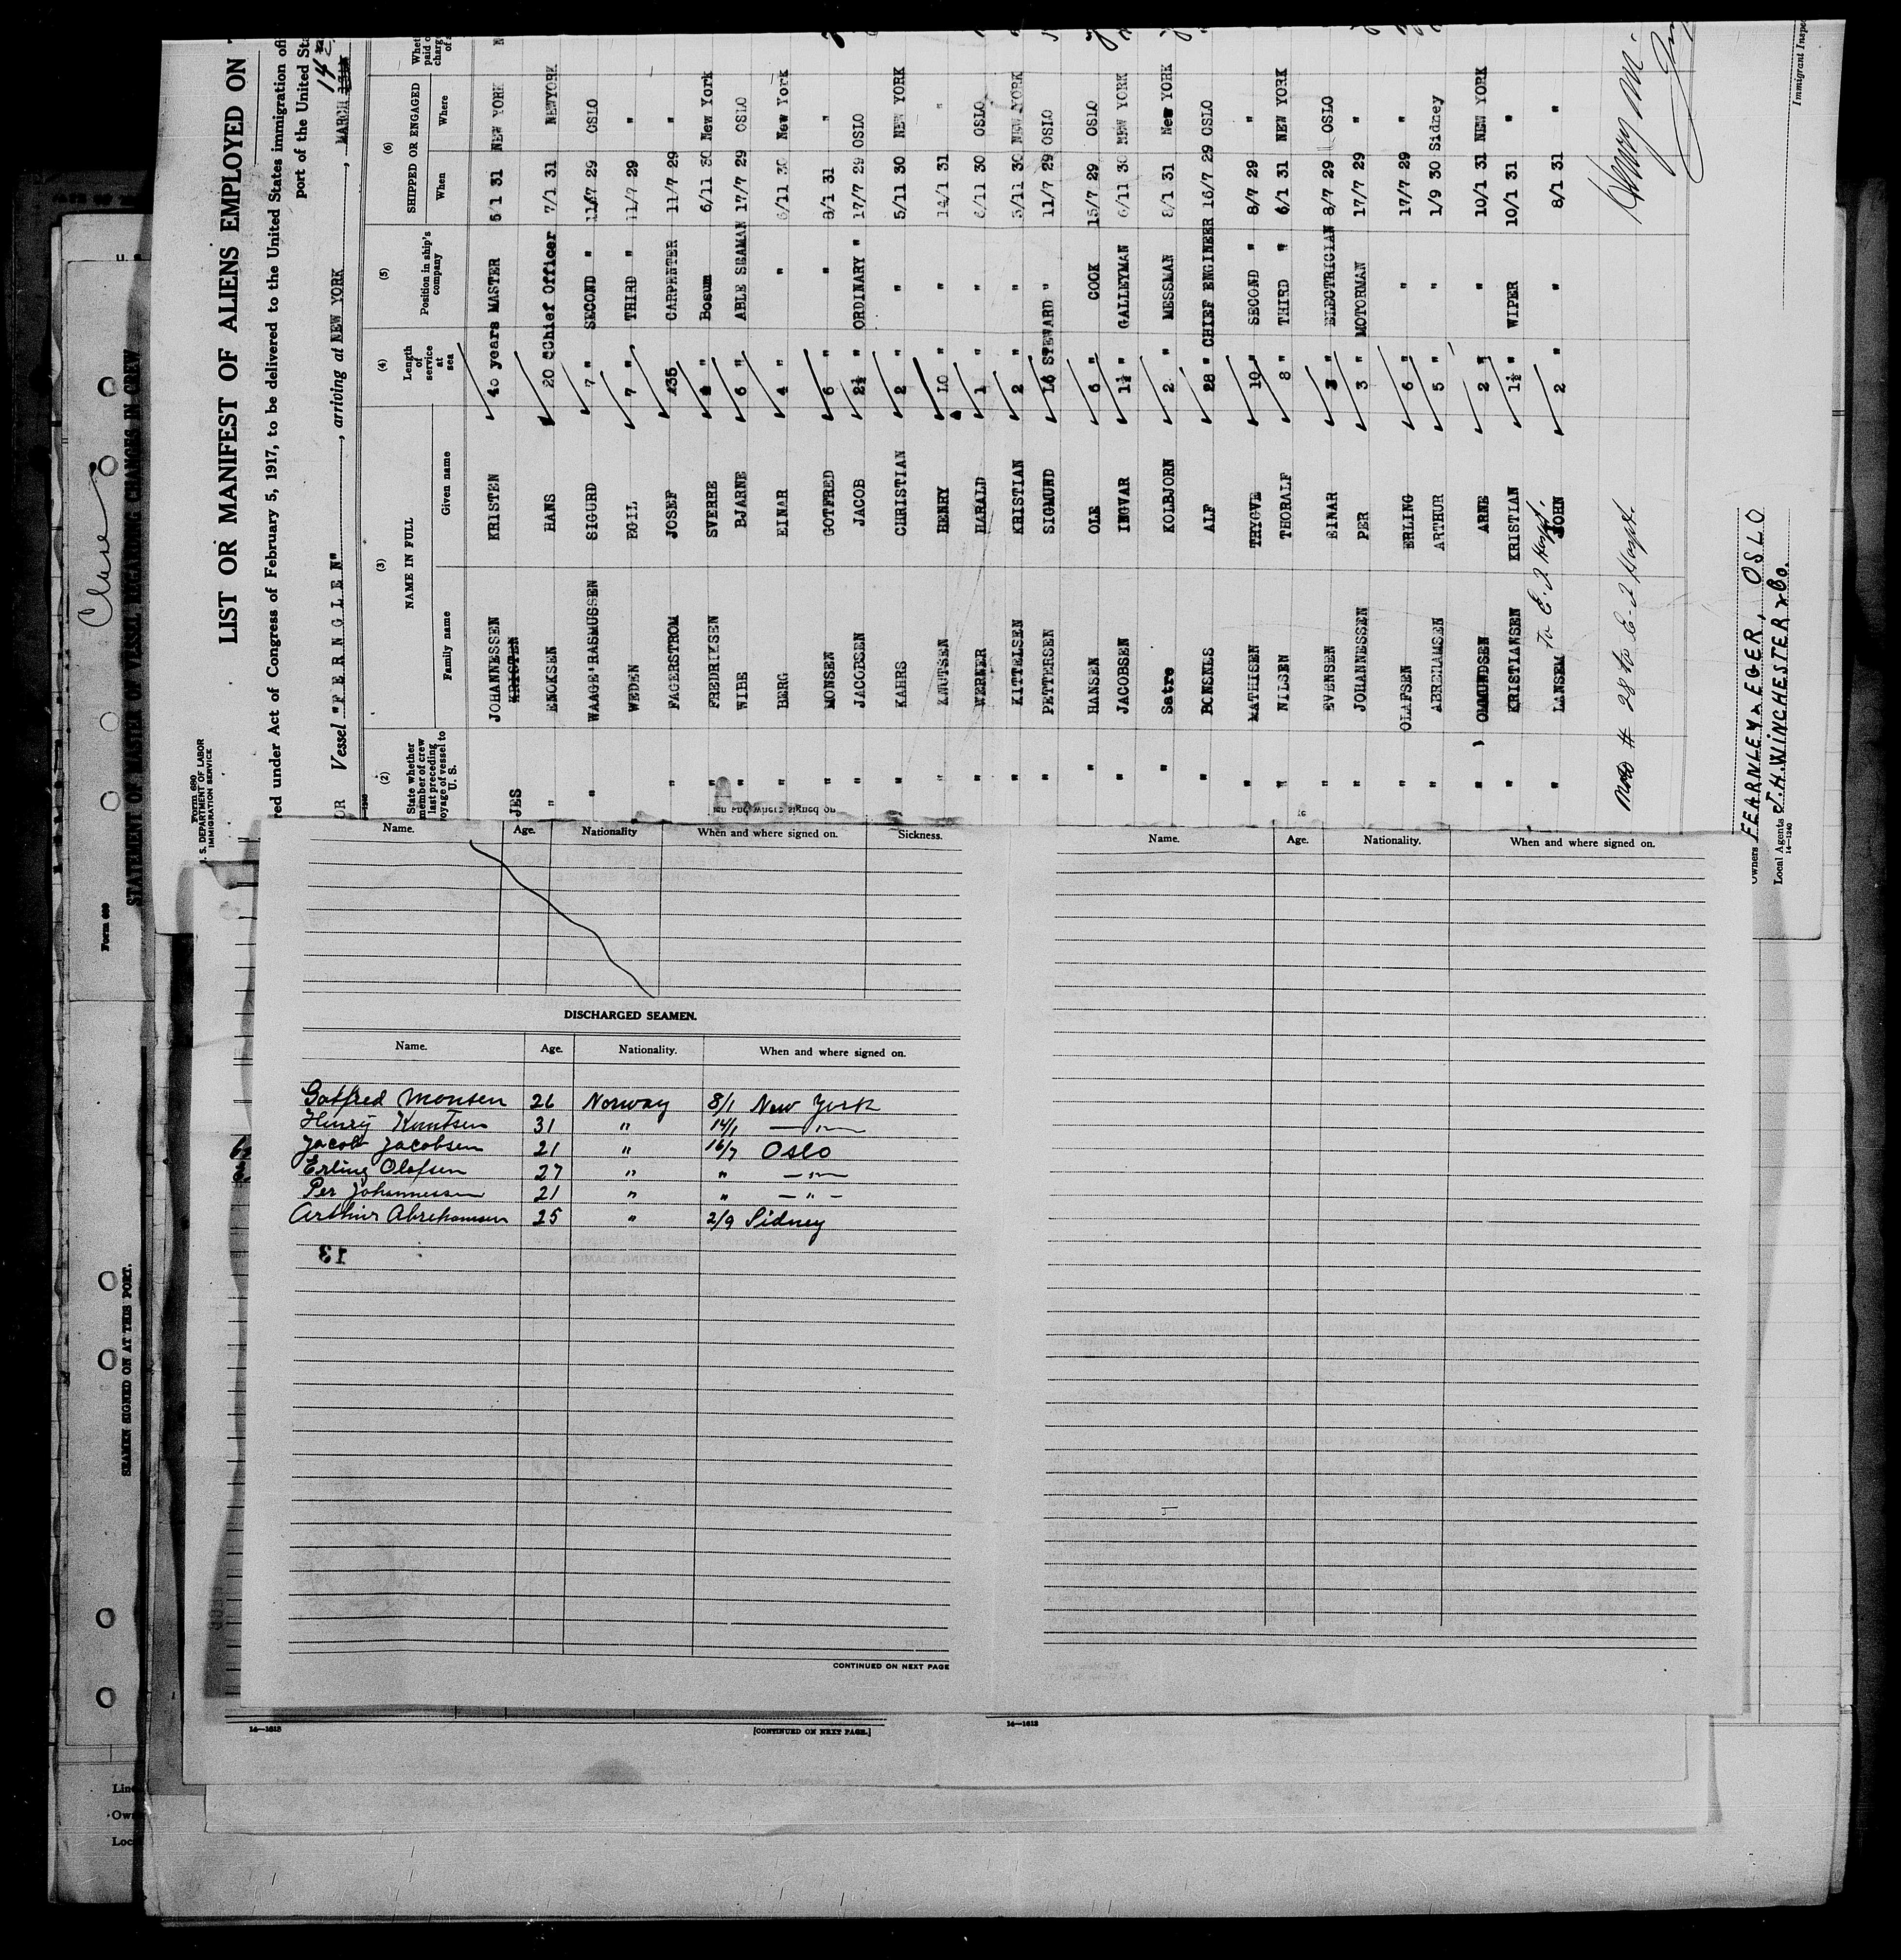 Form 680
U. S. DEPARTMENT OF LABOR
IMMIGRATION SERVICE
LIST OR MANIFEST OF ALIENS EMPLOYED ON
red under Act of Congress of February 5, 1917, to be delivered to the United States immigration
port of the United
Vessel "F E R N G L E N", arriving at NEW YORK, MARCH 14
(2) (3) (4) (5) (6)
State whether member of crew last preceding voyage of vessel to U. S.
NAME IN FULL
Family name Given name
Length of service at sea
Position in ship's company
SHIPPED OR ENGAGED
When Where
JES JOHANNESSEN KRISTEN 40 years MASTER 5/1 31 NEW YORK
KRISTEN
" ENOKSEN HANS 20 " Chief Officer 7/1 31 NEWYORK
" WAAGE'RASMUSSEN SIGURD 7 " SECOND " 11/7 29 OSLO
WEDEN EGIL 7 " THIRD " 11/7 29 "
" FAGERSTROM JOSEF 35 CARPENTER 11/7 29 "
" FREDRIKSEN SVERRE " Bosum 6/11 30 New York
" WIBE BJARNE 6 " ABLE SEAMAN 17/7 29 OSLO
" BERG EINAR 4 " " 6/11 30 New York
" MONSEN GOTFRED 6 " " 8/1 31 "
" JACOBSEN JACOB 2½ " ORDINARY " 17/7 29 OSLO
" KAHRS CHRISTIAN 2 " " 5/11 30 NEW YORK
" KNUTSEN HENRY 10 " 14/1 31 "
" WERNER HARALD 1 " " 6/11 30 OSLO
" KITTELSEN KRISTIAN 2 " " 5/11 30 NEW YORK
" PETTERSEN SIGMUND 16 STEWARD " 11/7 29 OSLO
" HANSEN OLE 6 " COOK 15/7 29 OSLO
" JACOBSEN INGVAR 1½ " GALLEYMAN 6/11 30 NEW YORK
" Satre KOLBJORN 2 " MESSMAN 8/1 31 New YORK
" BONSNES ALF 28 " CHIEF ENGINEER 16/7 29 OSLO
" MATHISEN TRYGVE 10 " SECOND " 8/7 29 "
" NILSEN THORALF 8 " THIRD " 6/1 31 NEW YORK
" EVENSEN EINAR 3 " ELECTRICIAN 8/7 29 OSLO
" JOHANNESSEN PER 3 " MOTORMAN 17/7 29 "
" OLAFSEN ERLING 6 " " 17/7 29 "
" ABREHAMSEN ARTHUR 5 " " 1/9 30 Sidney
OMMUNDSEN ARNE 2 " " 10/1 31 NEW YORK
" KRISTIANSEN KRISTIAN 1½ " WIPER 10/1 31 "
to E. I Hospt.
" LANSEM JOHN 2 " " 8/1 31 "
# 28 to E. I Hospt.
Immigrant
Owners FEARNLEY & EGER, OSLO
Local Agents J. H. WINCHESTER & Co.
14—1240
STATEMENT OF MASTER OF VESSEL REGARDING CHANGES IN CREW
Form 689
SEAMEN SIGNED ON AT THIS PORT.
Name. Age. Nationality When and where signed on. Sickness.
Name. Age. Nationality. When and where signed on.
DISCHARGED SEAMEN.
Name. Age. Nationality. When and where signed on.
Gotfred Monsen 26 Norway 8/1 New York
Henry Knutsen 31 " 14/1 — " —
Jacob Jacobsen 21 " 16/7 Oslo
Erling Olafsen 27 " " — " —
Per Johannessen 21 " " — " —
Arthur Abrehamsen 25 " 2/9 Sidney
CONTINUED ON NEXT PAGE
14—1613
[CONTINUED ON NEXT PAGE.]
14—1613